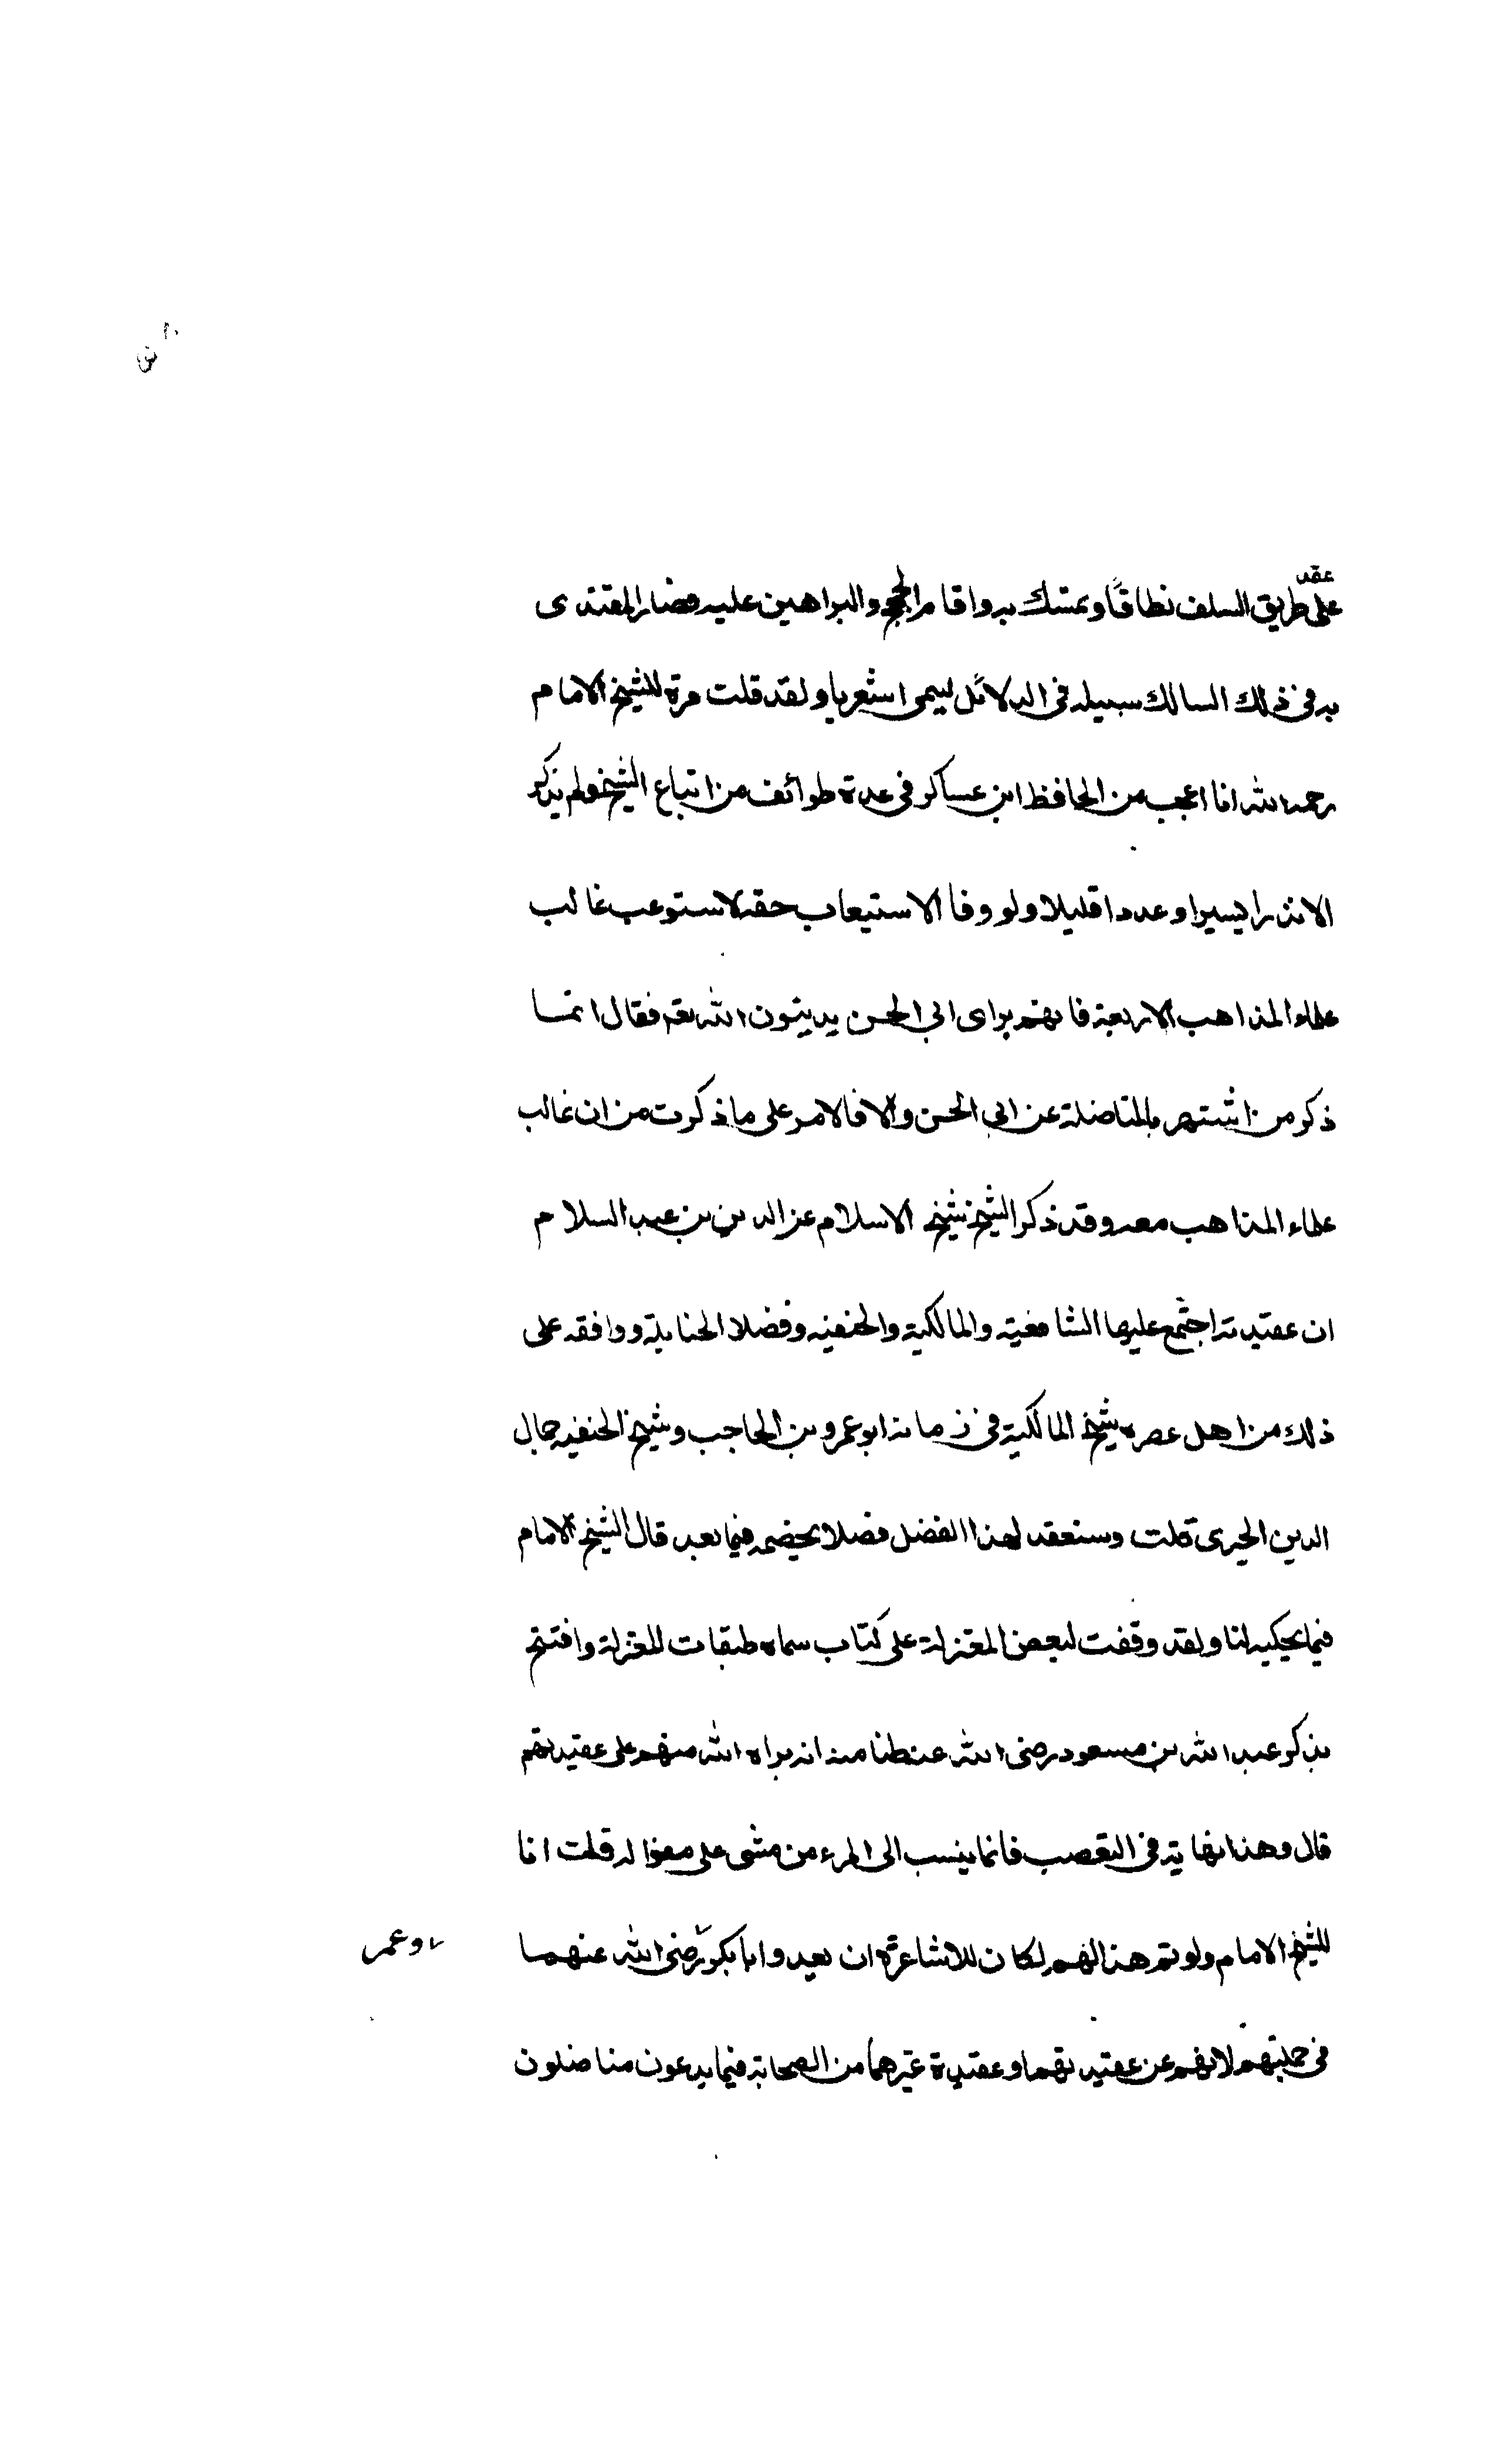 عقد
على طريق السلف نطاقًا وتمسك به واقام الحجج والبراهين عليه فصار المقتدى
به فى ذلك السالك سبيله فى الدلائل يسمى اشعريا ولقد قلت مرة للشيخ الامام
رحمه الله انا اعجب من الحافظ ابن عساكر فى عدة طوائف من اتباع الشيخ ولم يذكر
الا نذرا يسيرا وعددا قليلا ولو وفا الاستيعاب حقه لاستوعب غالب
علماء المذاهب الاربعة فانهم براى ابي الحسن يدينون الله تعم فقال انما
ذكر من اشتهر بالمناضلة عن ابي الحسن والا فالامر على ما ذكرت من ان غالب
علماء المذاهب معه وقد ذكر الشيخ شيخ الاسلام عز الدين بن عبد السلام
ان عقيدته اجتمع عليها الشافعية والمالكية والحنفية وفضلا الحنابلة ووافقه على
ذلك من اهل عصره شيخ المالكية فى زمانه ابو عمرو بن الحاجب وشيخ الحنفيه جمال
الدين الحيرى قلت وسنعقد لهذا الفضل فصلا يخصه فيما بعد قال الشيخ الامام
فيما يحكيه لنا ولقد وقفت لبعض المعتزلة على كتاب سماه طبقات المعتزلة وافتتح
بذكر عبد الله بن مسعود رضى الله عنه ظنا منه انه براه الله منهم على عقيدتهم
قال وهذا نهاية فى التعصب فانما ينسب الى المرء من مشى على منواله قلت انا
للشيخ الامام ولو تم هذا لهم لكان للاشاعرة ان يعيدوا ابا بكر رضى الله عنهما
وعمر
فى جملتهم لانهم عن عقيدتهما وعقيدة غيرهما من الصحابة فيما يدعون مناضلون